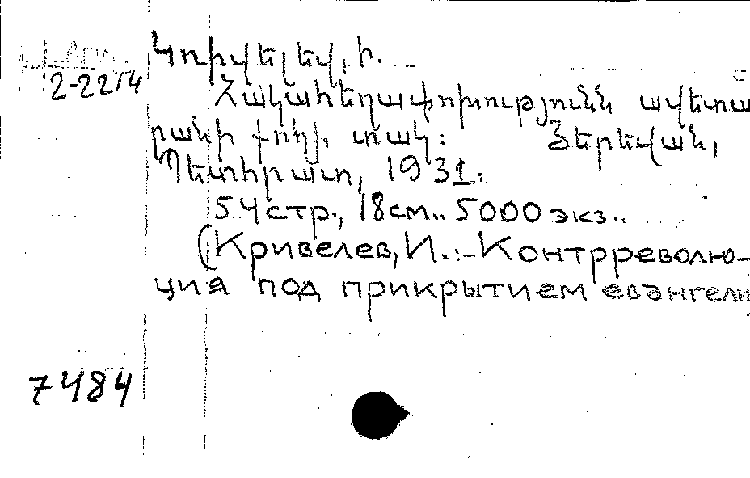 2-2214
Կռիվելեվ, ի.
Հակահեղափոխությունն ավետա
րանի քողի տակ: Յերեվան,
Պետհրատ, 1931.
54 стр., 18 см.. 5000 экз..
(Кривелев, И.:- Контрреволю-
ция под прикрытием евангели
7484